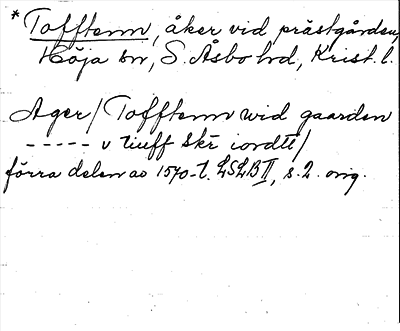 * Tofftenn, åker vid prästgården,
Höja sn, S. Åsbo hd, Krist. l.
Ager / Tofftenn wid gaarden
----- v tiuff Skr iordtt /
förra delen av 1570-t. LSLB II, s. 2. orig.